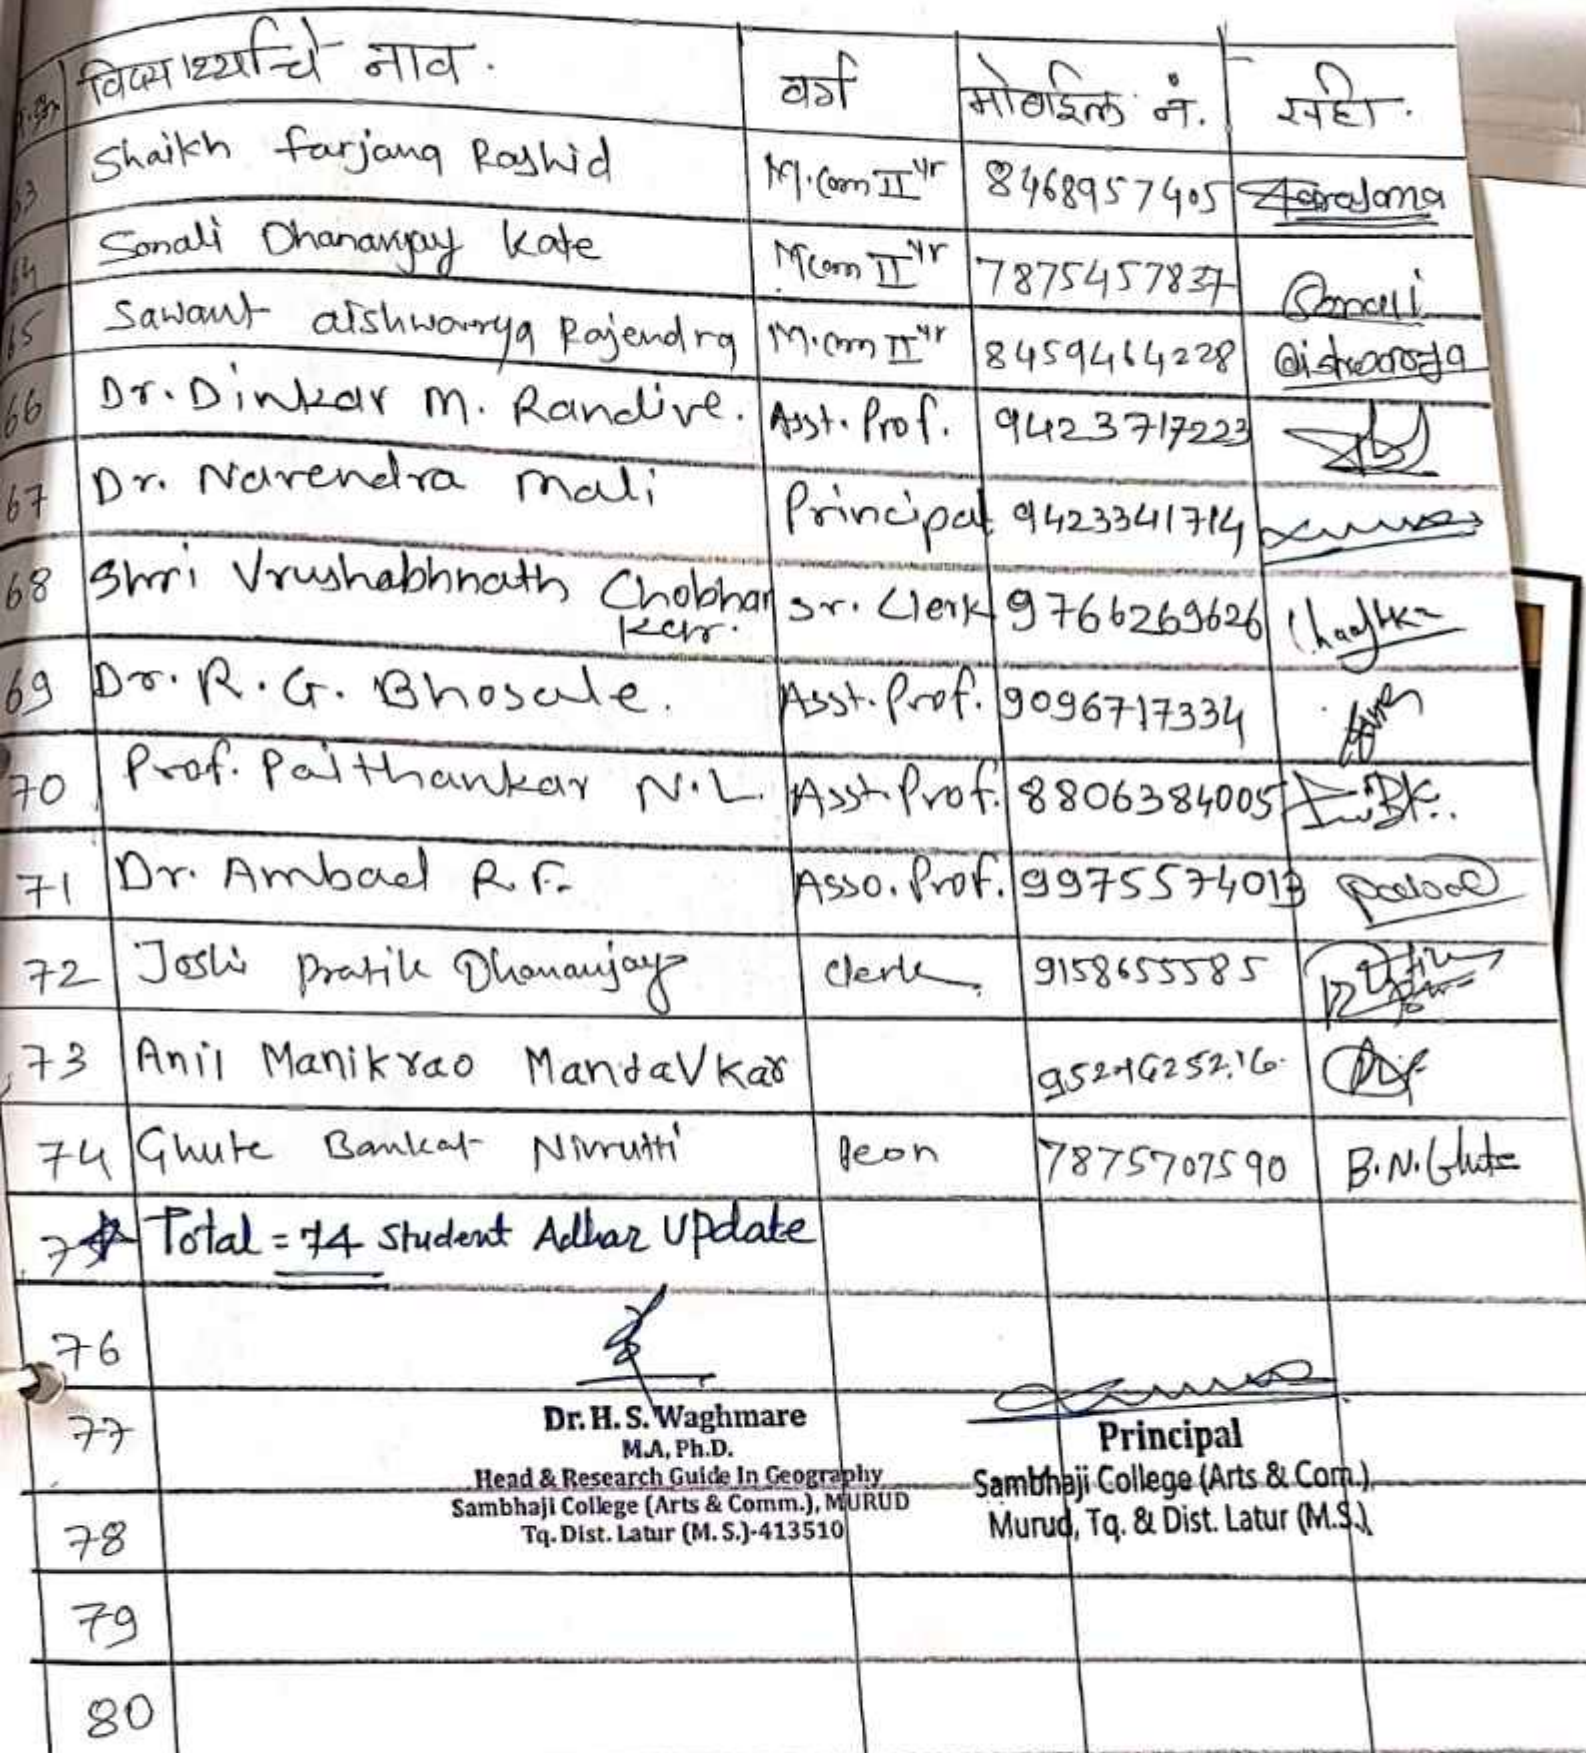 विद्यार्थ्यांचे नाव. वर्ग मोबाईल नं. सही.
63 Shaikh farjana Rashid M.Com II yr 8468957405 Farajana
64 Sonali Dhananjay Kate Mcom II yr 7875457837 Sonali
65 Sawant aishwarya Rajendra M.com II yr 8459464228 aishwarya
66 Dr. Dinkar M. Randive. Asst. Prof. 9423717223
67 Dr. Narendra Mali Principal 9423341714
68 Shri Vrushabhnath Chobhar Sr. Clerk 9766269626
kar.
69 Dr. R. G. Bhosale. Asst. Prof. 9096717334
70 Prof. Paithankar N.L. Asst. Prof. 8806384005
71 Dr. Ambad R.F. Asso. Prof. 9975574013
72 Joshi Pratik Dhananjay clerk 9158655585
73 Anil Manikrao Mandavkar
74 Ghute Bankat Nivrutti Peon 7875707590 B.N.Ghute
Total = 74 Student Adhar Update
76
77
Dr. H. S. Waghmare
M.A, Ph.D.
Head & Research Guide In Geography
Sambhaji College (Arts & Comm.), MURUD
Tq. Dist. Latur (M. S.)-413510
Principal
Sambhaji College (Arts & Com.)
Murud, Tq. & Dist. Latur (M.S.)
78
79
80